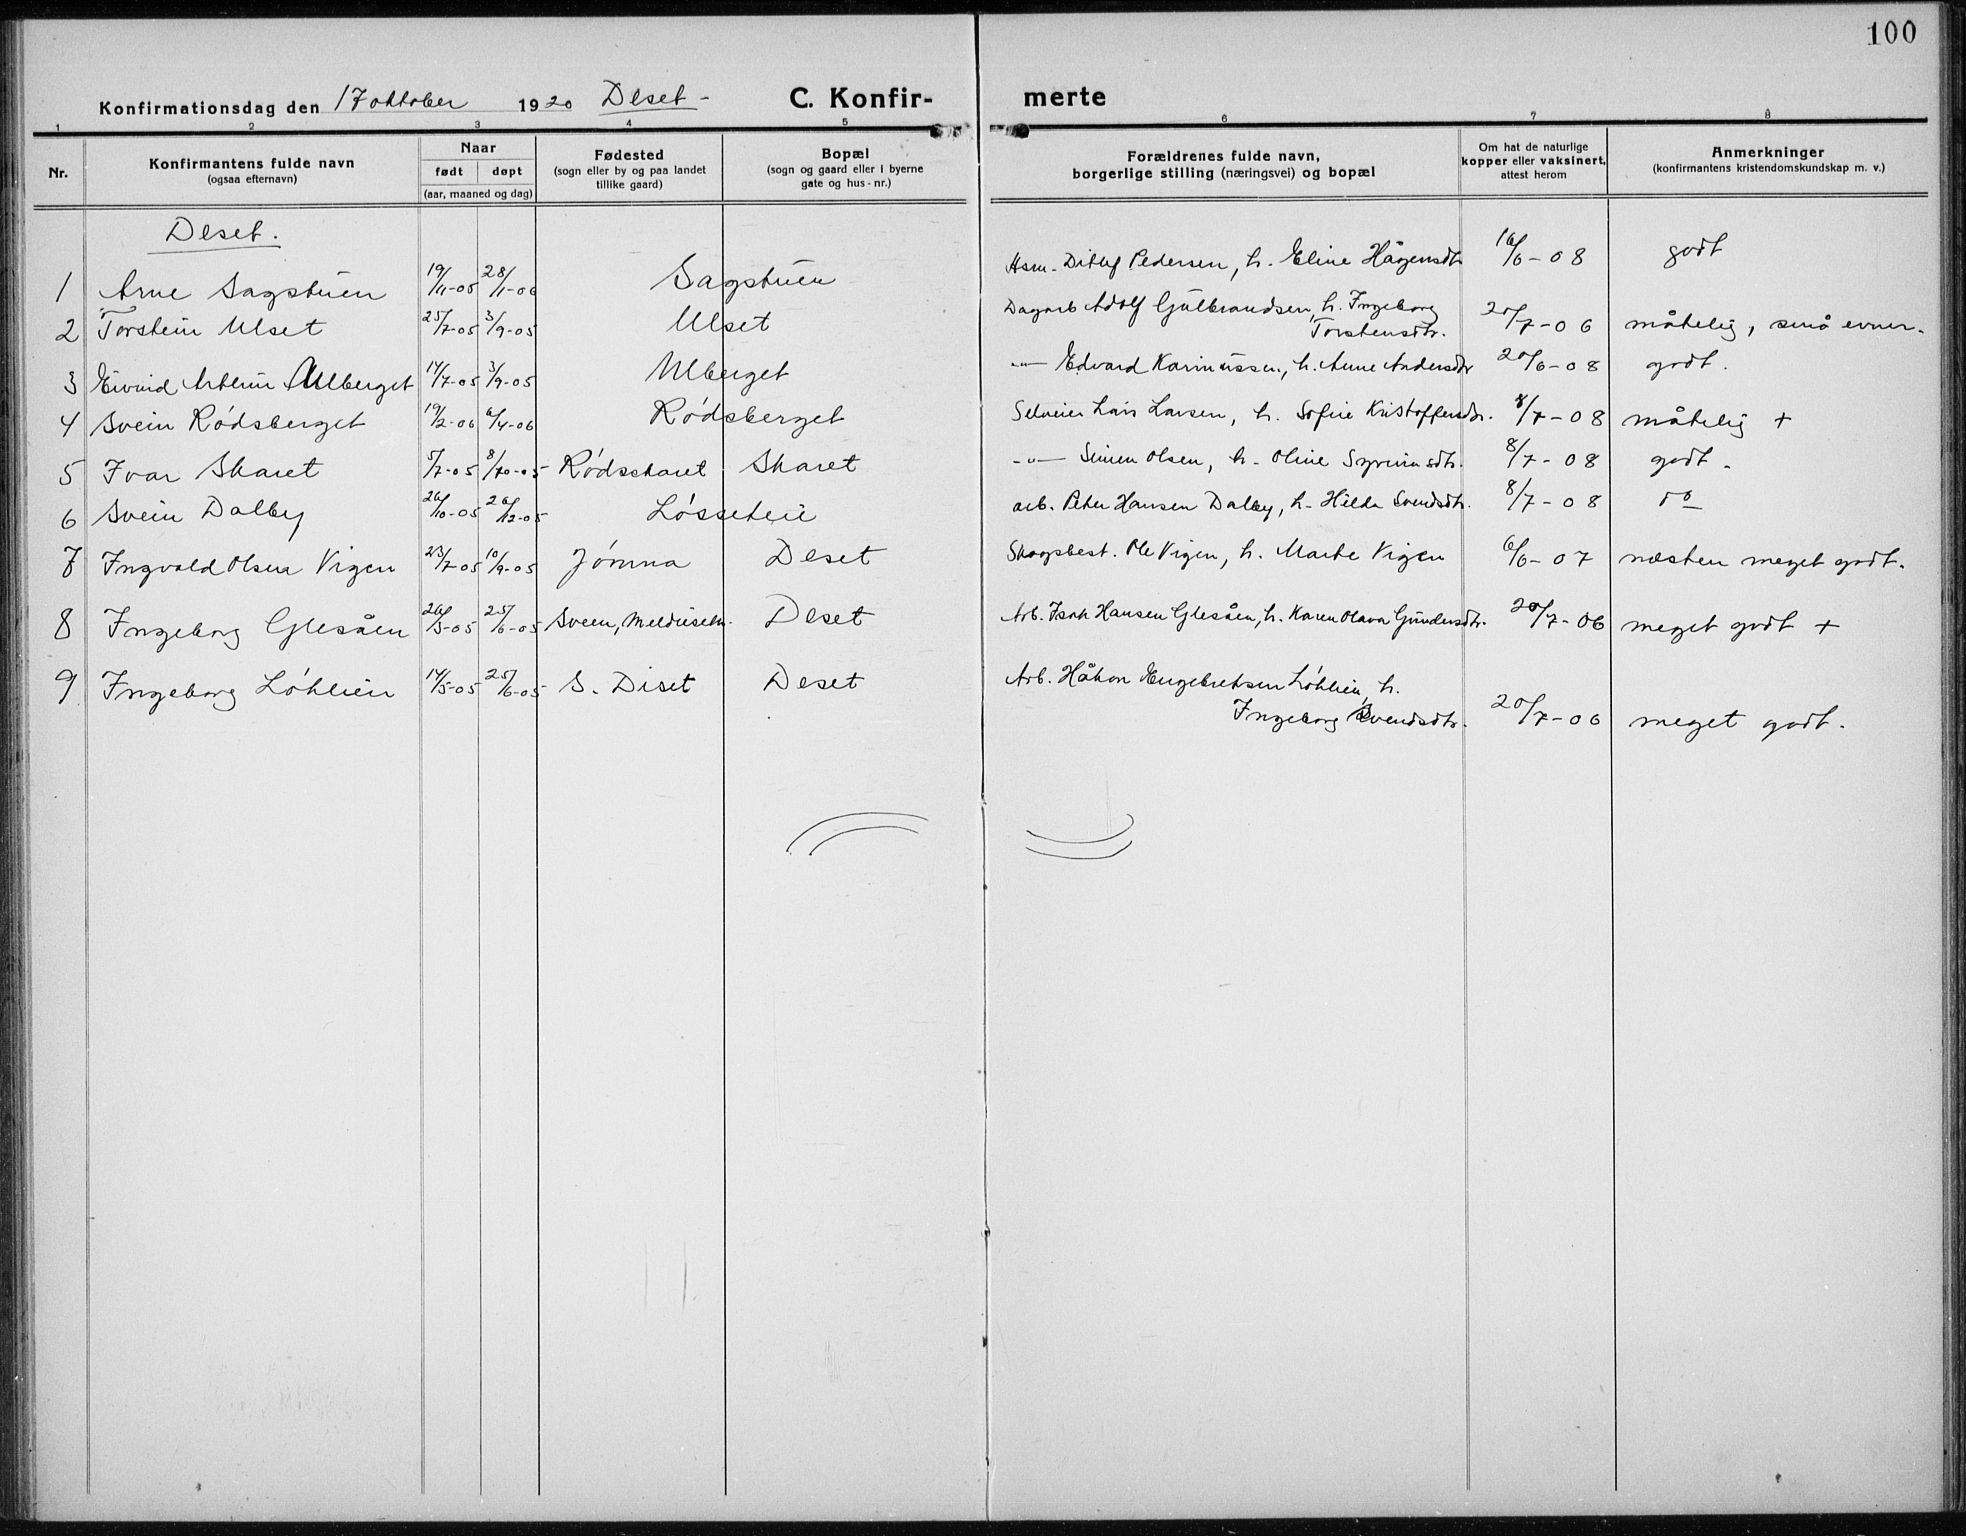 100
Konfirmationsdag den 17 oktober 1920 Deset - C. Konfir- merte
1 2 3 4 5 6 7 8
Nr. Konfirmantens fulde navn (ogsaa efternavn) Naar født døpt (aar, maaned og dag) Fødested (sogn eller by og paa landet tillike gaard) Bopæl (sogn og gaard eller i byerne gate og hus-nr.) Forældrenes fulde navn, borgerlige stilling (næringsvei) og bopæl Om hat de naturlige kopper eller vaksinert, attest herom Anmerkninger (konfirmantens kristendomskundskap m. v.)
Deset.
1 Arne Sagstuen 19/11-05 28/1-06 Sagstuen Hsm. Ditlef Pedersen, h. Eline Hågensdtr. 16/6-08 godt
2 Torstein Ulset 25/7-05 3/9-05 Ulset Dagarb Adolf Gulbrandsen, h. Ingeborg
Torstensdtr. 20/7-06 måtelig, små evner.
3 Eivind Ulberget 14/7-05 3/9-05 Ulberget -"- Edvard h. Anne Andersdtr 20/6-08 godt.
4 Svein Rødsberget 19/2-06 6/4-06 Rødsberget Selveier Lars Larsen, h. Sofie Kristoffersdtr. 8/7-08 måtelig +
5 Ivar Skaret 5/7-05 8/10-05 Rødsskaret Skaret -"- Simen Olsen, h. Oline Syverinsdtr. 8/7-08 godt.
6 Svein Dalby 26/10-05 26/12-05 Løsseteie arb. Peter Hansen Dalby, h. Hilda Svendsdtr. 8/7-08 do
7 Ingvald Olsen Vigen 23/7-05 10/9-05 Jømna Deset Skogsbest. Ole Vigen, h. Marte Vigen 6/6-07 næsten meget godt.
8 Ingeborg Glesåen 26/3-05 25/6-05 Sveen, Deset Arb. Isak Hansen Glesåen, h. Karen Olava Gundersdtr. 20/7-06 meget godt +
9 Ingeborg Løhlien 14/5-05 25/6-05 S. Diset Deset Arb. Håkon Engebretsen Løhlien, h.
Ingeborg Svendsdtr. 20/7-06 meget godt.